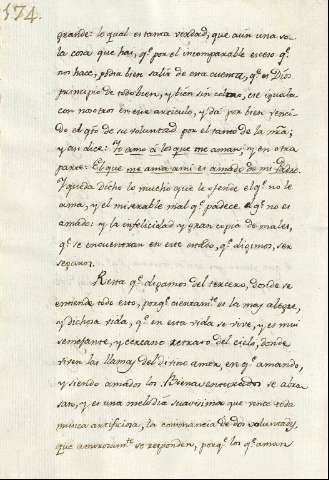 574.
grande: lo qual es tanta verdad, que aun una so-
la cosa que hai, q.e por el incomparable exceso q.e
nos hace, podria bien salir de esta cuenta, q.e es Dios
principio de todo bien, y bien sin tasa, se iguala
con nosotros en este articulo, y dá por bien venci-
do el qto de su voluntad por el tanto de la nra;
y asi dice: Yo amo á los que me aman, y en otra
parte: El que me ama á mi es amado de mi Padre.
Y queda dicho lo mucho que le ofende el q.e no le
ama, y el miserable mal q.e padece el q.e no es
amado: y la infelicidad y gran copia de males,
q.e se encuentran en este estado, q.e digimos, ser
segundo.
Resta q.e digamos del tercero, donde se
entiende todo esto, porq.e ciertam.te es la mas alegre,
y dichosa vida, q.e en esta vida se vive, y es mui
semejante, y cercano retrato del cielo, donde
viven las llamas del divino amor, en q.e amando,
y siendo amados los Bienaventurados se abra-
san, y es una melodia suavisima que vence toda
musica artificiosa, la consonancia de dos voluntades,
que amorosam.te se responden, porq.e los q.e aman